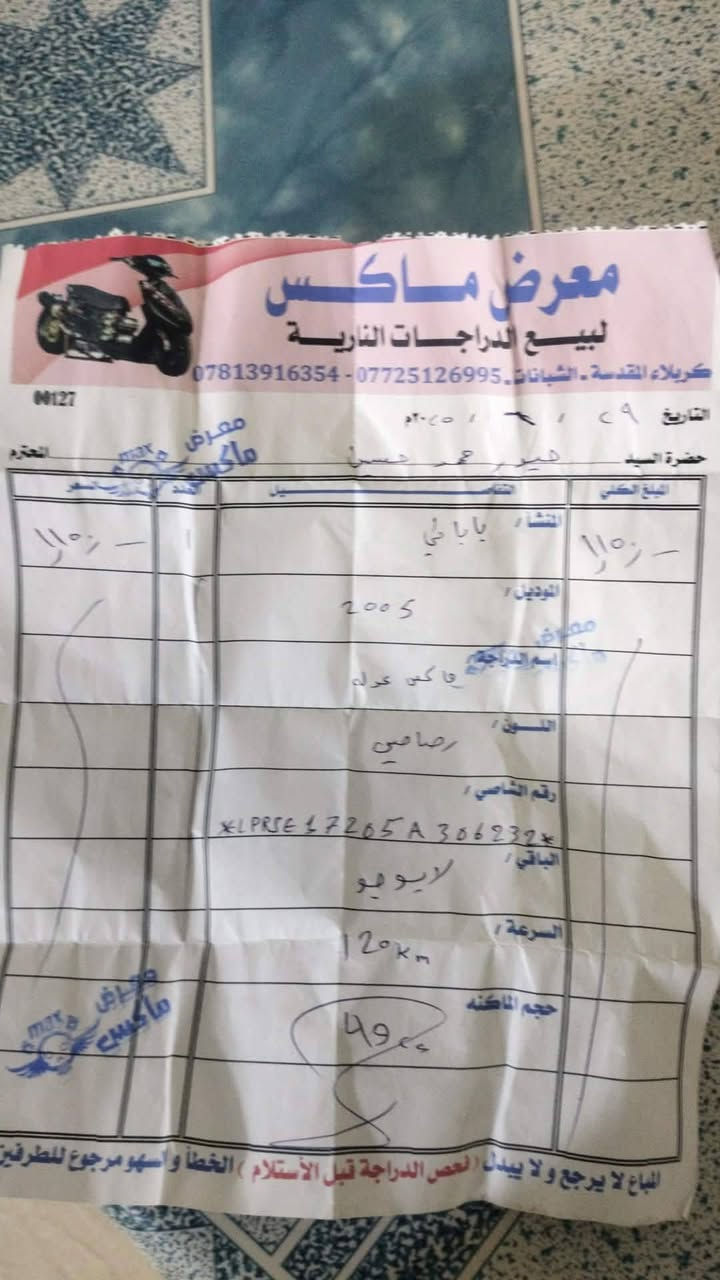 معرض ماكس
لبيع الدراجات النارية
كربلاء المقدسة - الشبانات - 07725126995 - 07813916354
00127
التاريخ ٢٩ / ٦ / ٢٠٢٥م
حضرة السيد حيدر حمد حسين المحترم
المبلغ الكلي التفاصيل العدد السعر
المنشأ / ياباني
١
الموديل / 2005
اسم الدراجة /
اللون / رصاصي
رقم الشاصي /
*LPRSE17205A306232*
الباقي / لايوجد
السرعة / 120km
حجم الماكنه
49cc
المباع لا يرجع ولا يبدل (فحص الدراجة قبل الأستلام) الخطأ والسهو مرجوع للطرفين
معرض ماكس
معرض ماكس
معرض ماكس